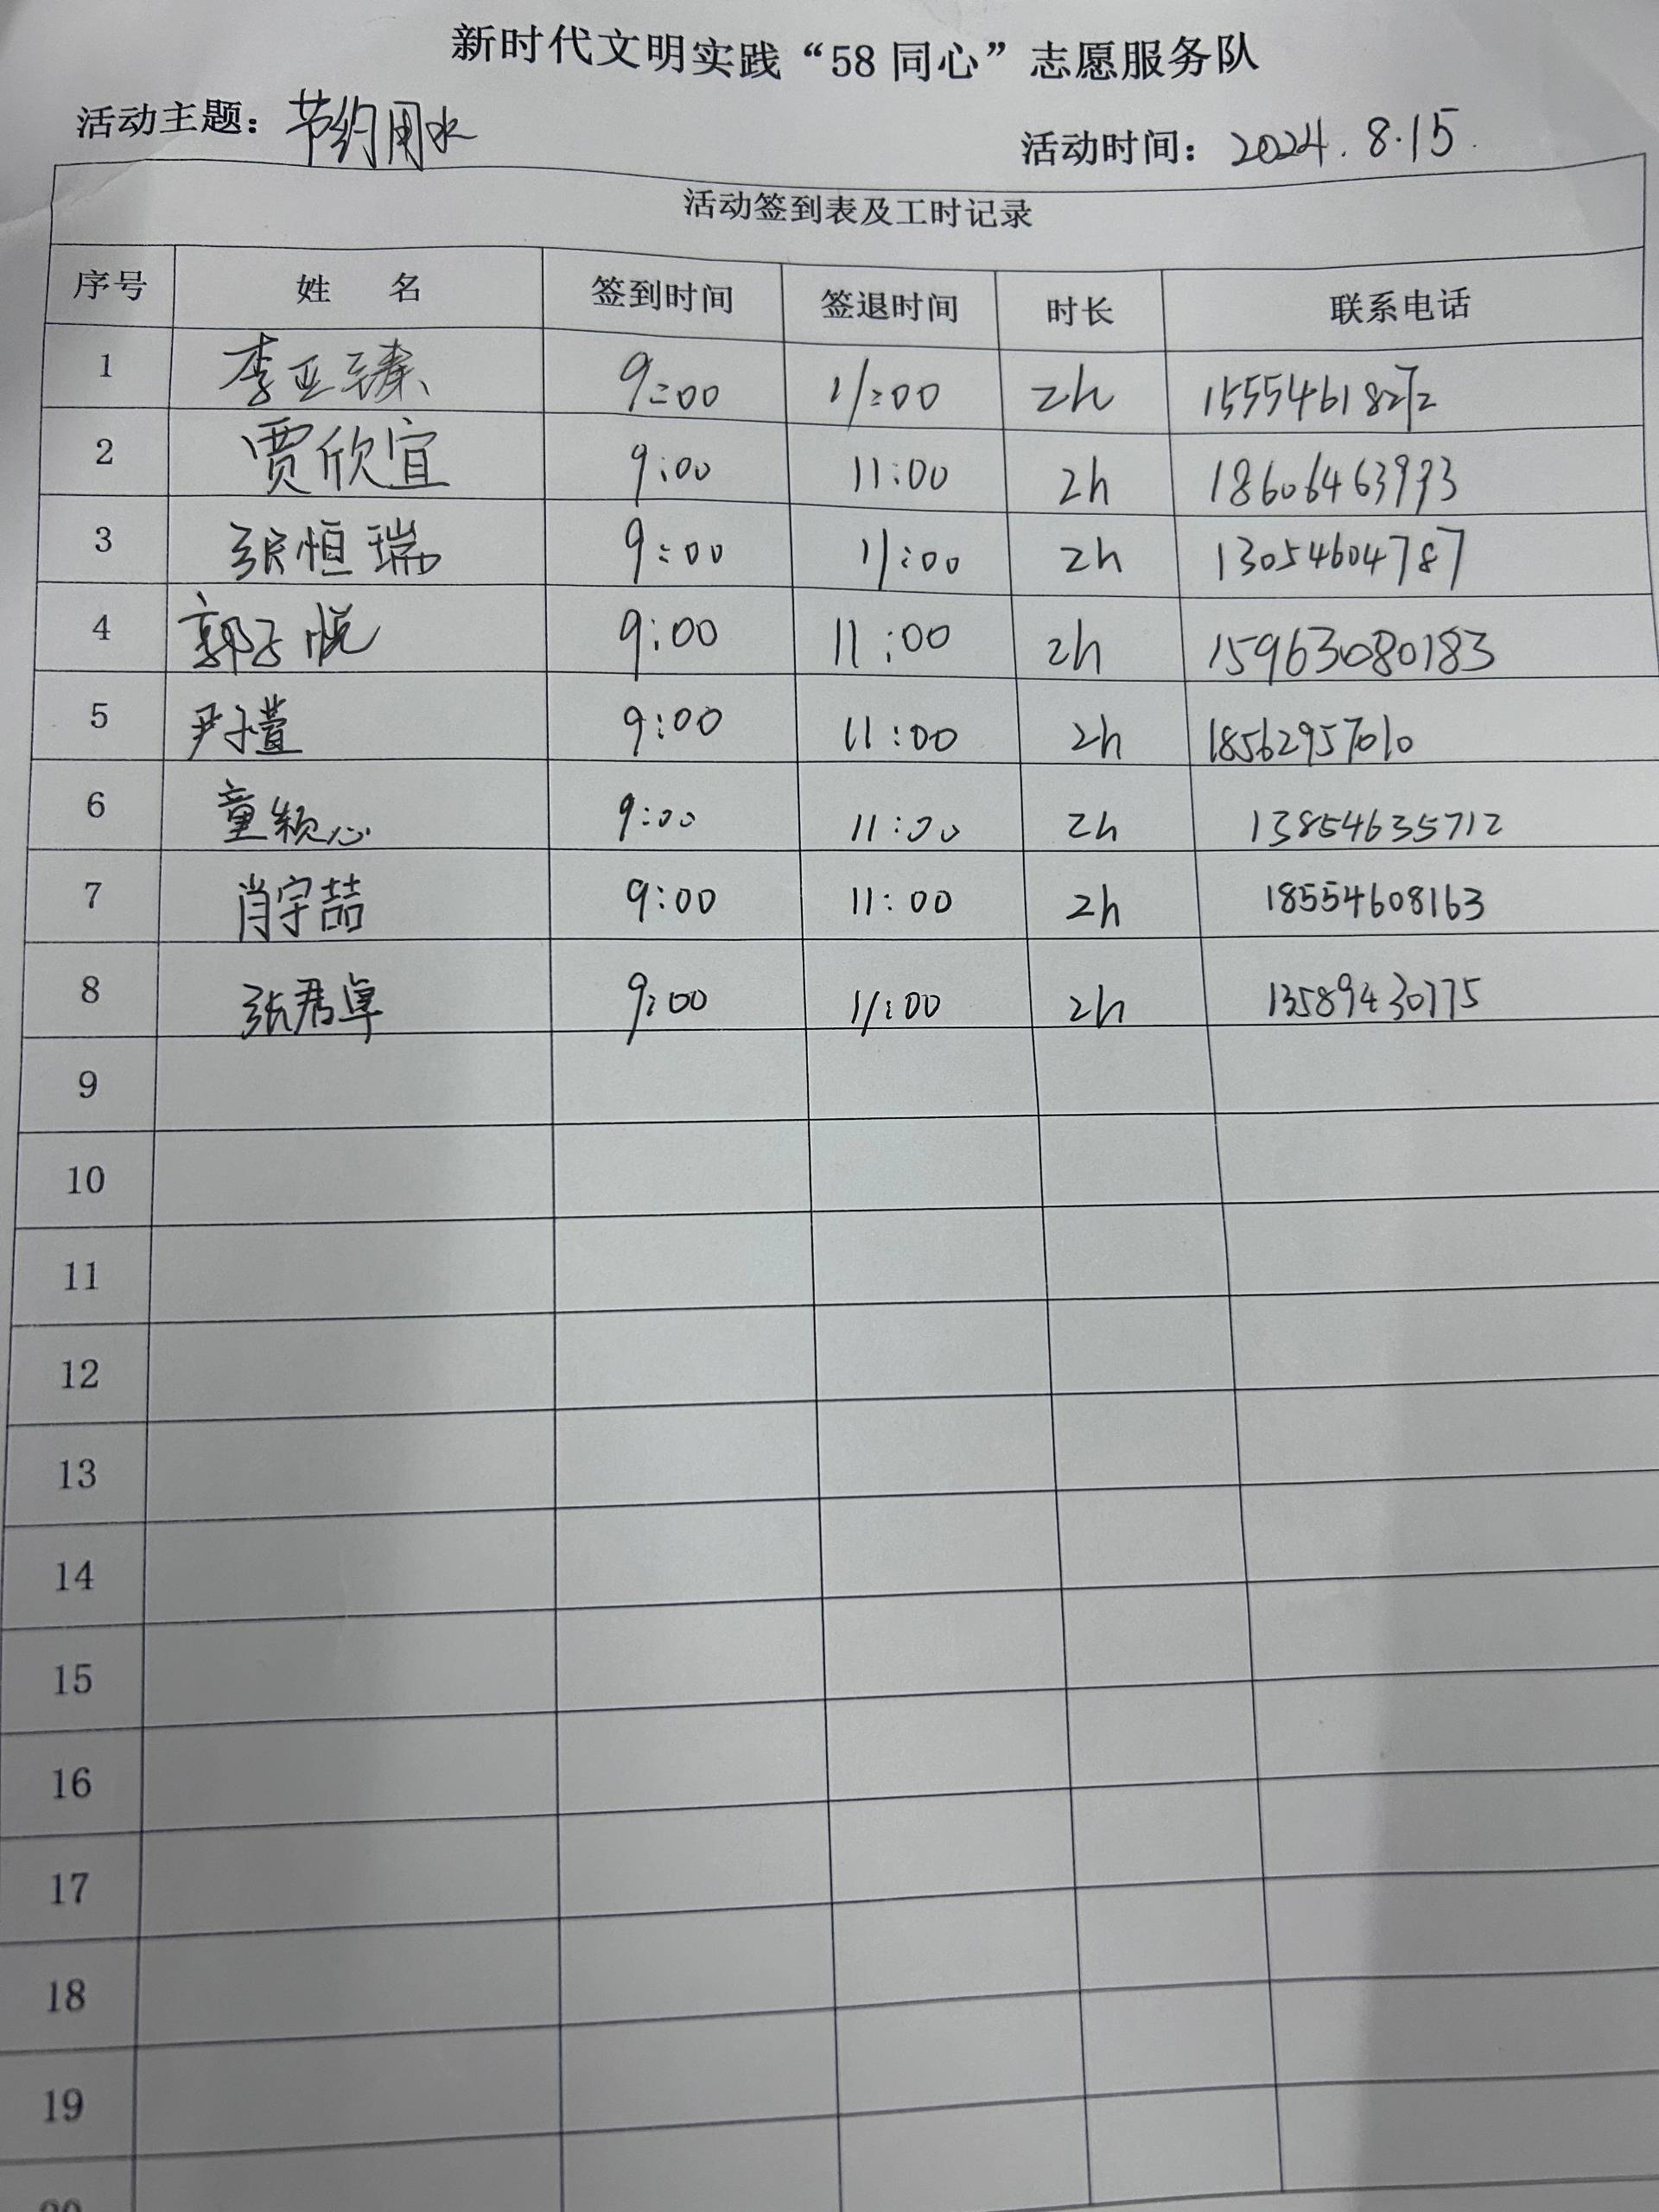 新时代文明实践“58同心”志愿服务队
活动主题：节约用水 活动时间：2024.8.15.
活动签到表及工时记录
序号 姓 名 签到时间 签退时间 时长 联系电话
1 李亚臻 9:00 11:00 2h 15554618272
2 贾欣宜 9:00 11:00 2h 18606463993
3 张恒瑞 9:00 11:00 2h 13054604787
4 郭子悦 9:00 11:00 2h 15963080183
5 尹子萱 9:00 11:00 2h 18562957010
6 童颖心 9:00 11:00 2h 13854635712
7 肖宇喆 9:00 11:00 2h 18554608163
8 张君卓 9:00 11:00 2h 13589430775
9
10
11
12
13
14
15
16
17
18
19
20